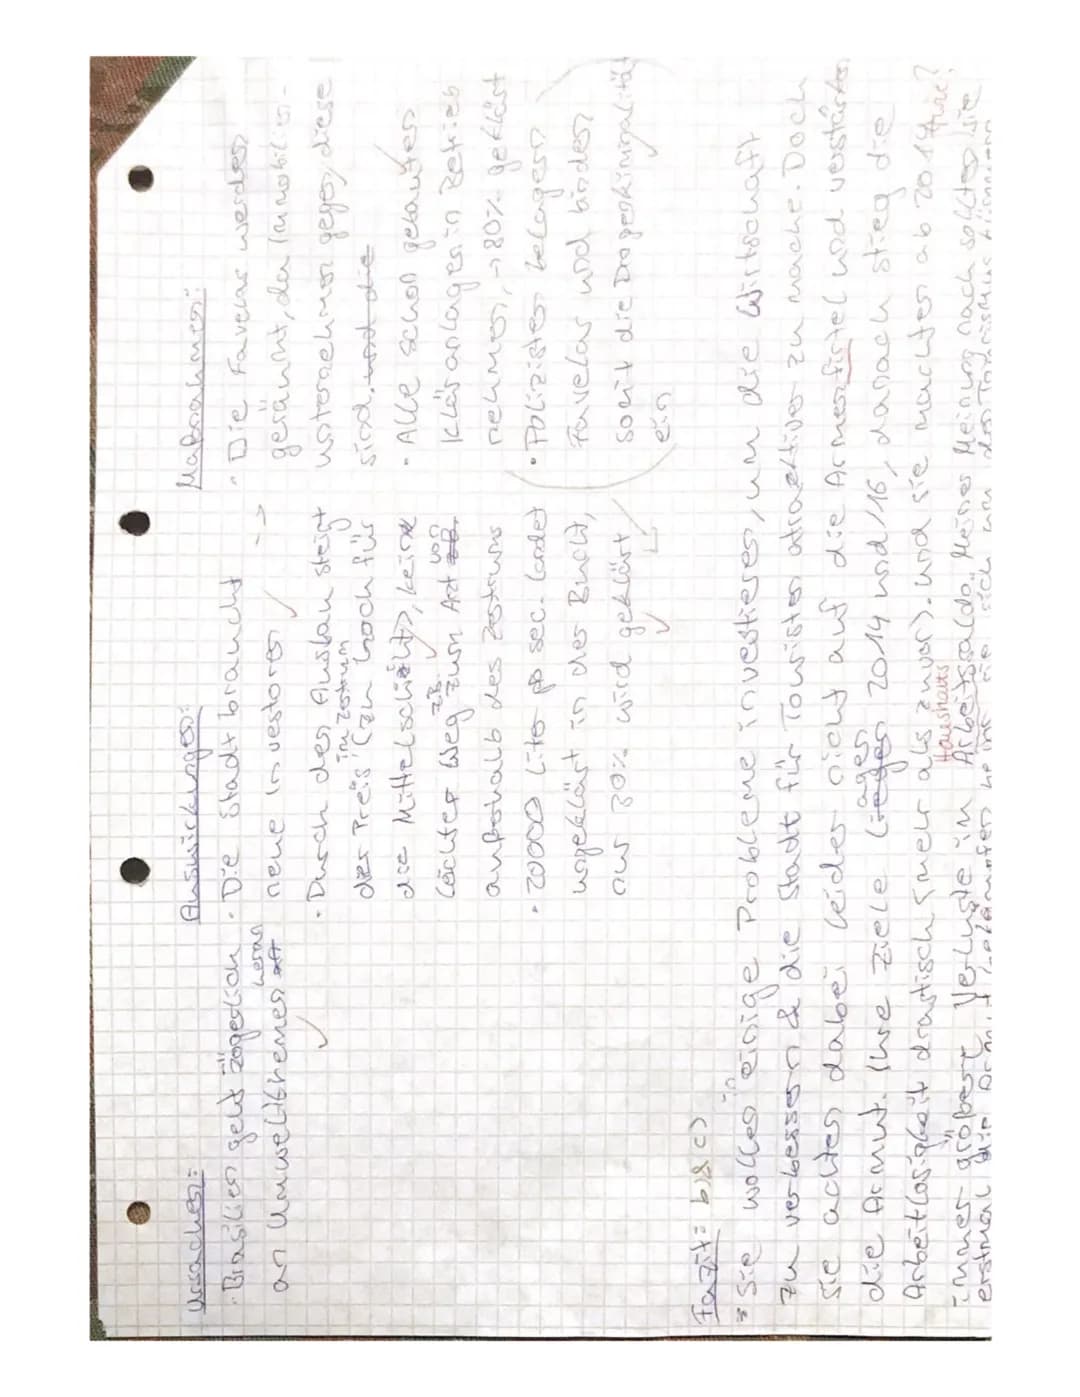 Ursachen:
· Brasilien geht zögerlich
an Umweltthemen heran
Auswirkungen:
· Die Stadt braucht
neue Investoren
· Durch den Ausbau steigt
der Preis im Zentrum (zu hoch für
die Mittelschicht), kein
leichter Weg z.B. zum Arzt von
außerhalb des Zentrums
· 20000 Liter pro sec. landet
ungeklärt in der Bucht,
nur 30% wird geklärt
Maßnahmen:
· Die Favelas werden
geräumt, da Immobilien-
unternehmer gegen diese
sind, und die
· Alle schon gebauten
Kläranlagen in Betrieb
nehmen, → 80% geklärt
· Polizisten belagern
Favelas und binden
somit die Drogenkriminalität
ein
Fazit: b) & c)
Sie wollen in einige Probleme investieren, um die Wirtschaft
zu verbessern & die Stadt für Touristen attraktiver zu mache. Doch
sie achten dabei leider nicht auf die Armenfirtel und verstärken
die Armut. Ihre Ziele lagen 2014 und/16, danach stieg die
Arbeitlosigkeit drastisch (mehr als zuvor). und sie machten ab 2014
immer größere Verluste im Haushalts Arbeitssaldo. Meiner Meinung nach sollten sie
erstmal die Armut bekämpfen